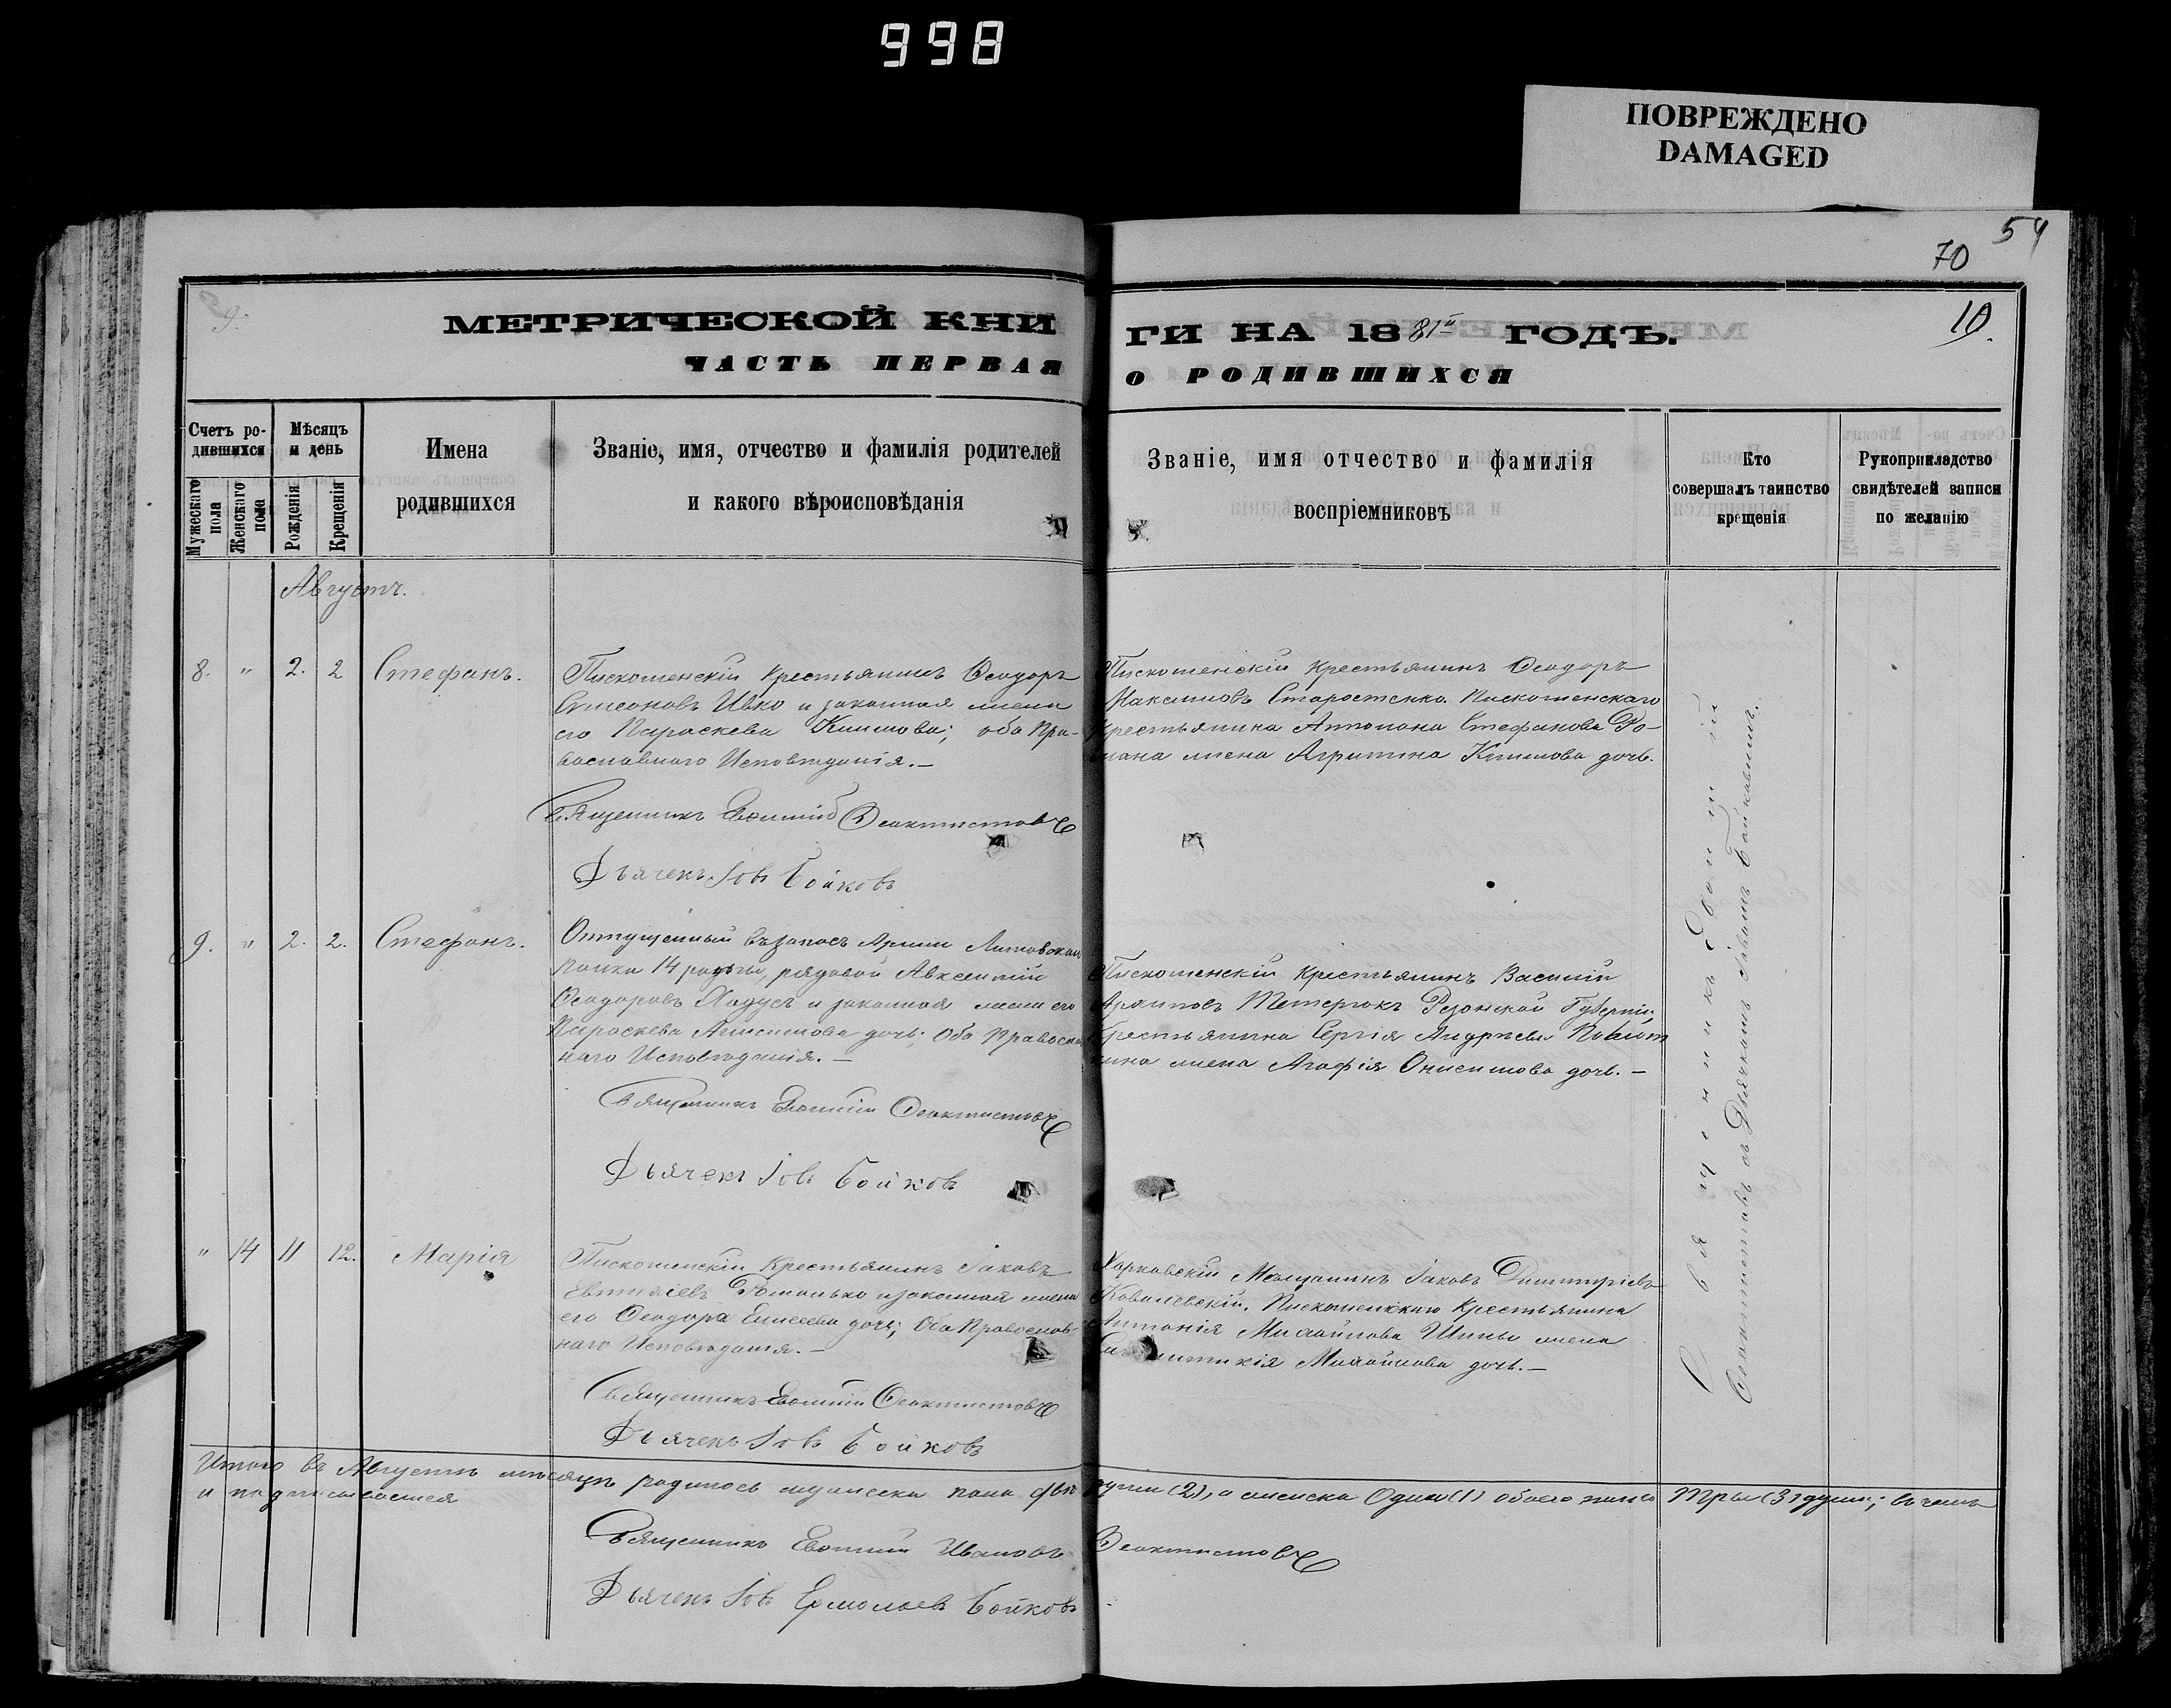 998
ПОВРЕЖДЕНО
DAMAGED
54
70
10.
МЕТРИЧЕСКОЙ КНИ
ГИ НА 1881й ГОДЪ.
ЧАСТЬ ПЕРВАЯ
О РОДИВШИХСЯ
Счетъ ро-
дившихся
Мужескаго
пола
Женскаго
пола
Мѣсяцъ
и день
Рожденія
Крещенія
Имена
родившихся
Званіе, имя, отчество и фамилія родителей
и какого вѣроисповѣданія
Званіе, имя отчество и фамилія
воспріемниковъ
Кто
совершалъ таинство
крещенія
Рукоприкладство
свидѣтелей записи
по желанію
Августъ.
8. " 2. 2 Стефанъ.
Пискошенскій крестьянинъ Ѳеодоръ
Симеоновъ Ивко и законная жена
его Параскева Климова; оба Пра-
вославнаго Исповѣданія.—
Священникъ Евѳимій Ѳеоктистовъ
Дьячекъ Іовъ Бойковъ
Пискошенскій крестьянинъ Ѳеодоръ
Максимовъ Старостенко. Пискошенскаго
крестьянина Антона Стефанова Ро-
мана жена Агрипина Климова дочь.
9. " 2. 2. Стефанъ.
Отпущенный въ запасъ Арміи Литовскаго
Полка 14 роты, рядовой Авксентій
Ѳеодоровъ и законная жена его
Параскева Анисимова дочь; Оба Православ
наго Исповѣданія.—
Священникъ Евѳимій Ѳеоктистовъ
Дьячекъ Іовъ Бойковъ
Пискошенскій крестьянинъ Василій
Архиповъ Тетерюкъ Резанской Губерніи,
Крестьянина Сергія Андреева
жена Агафія Онисимова дочь.—
" 14 11 12. Марія
Пискошенскій Крестьянинъ Іаковъ
Евтихіевъ Романько и законная жена
его Ѳеодора Елисеева дочь; Оба Православ-
наго Исповѣданія.—
Священникъ Евѳимій Ѳеоктистовъ
Дьячекъ Іовъ Бойковъ
Харковскій Мещанинъ Іаковъ Димитріевъ
Ковалевскій. Пискошенскаго Крестьянина
Антонія Михайлова Шипы жена
Михайлова дочь.—
Священникъ Евѳимій
Ѳеоктистовъ съ Дьячкомъ Іовомъ Бойковымъ.
Итого въ Августѣ мѣсяцѣ родилось мужеска пола двѣ души (2), а женска Одна (1) обоего пола Три (3) души; въ чемъ
и подписываемся
Священникъ Евѳимій Ивановъ Ѳеоктистовъ
Дьячекъ Іовъ Ермолаевъ Бойковъ